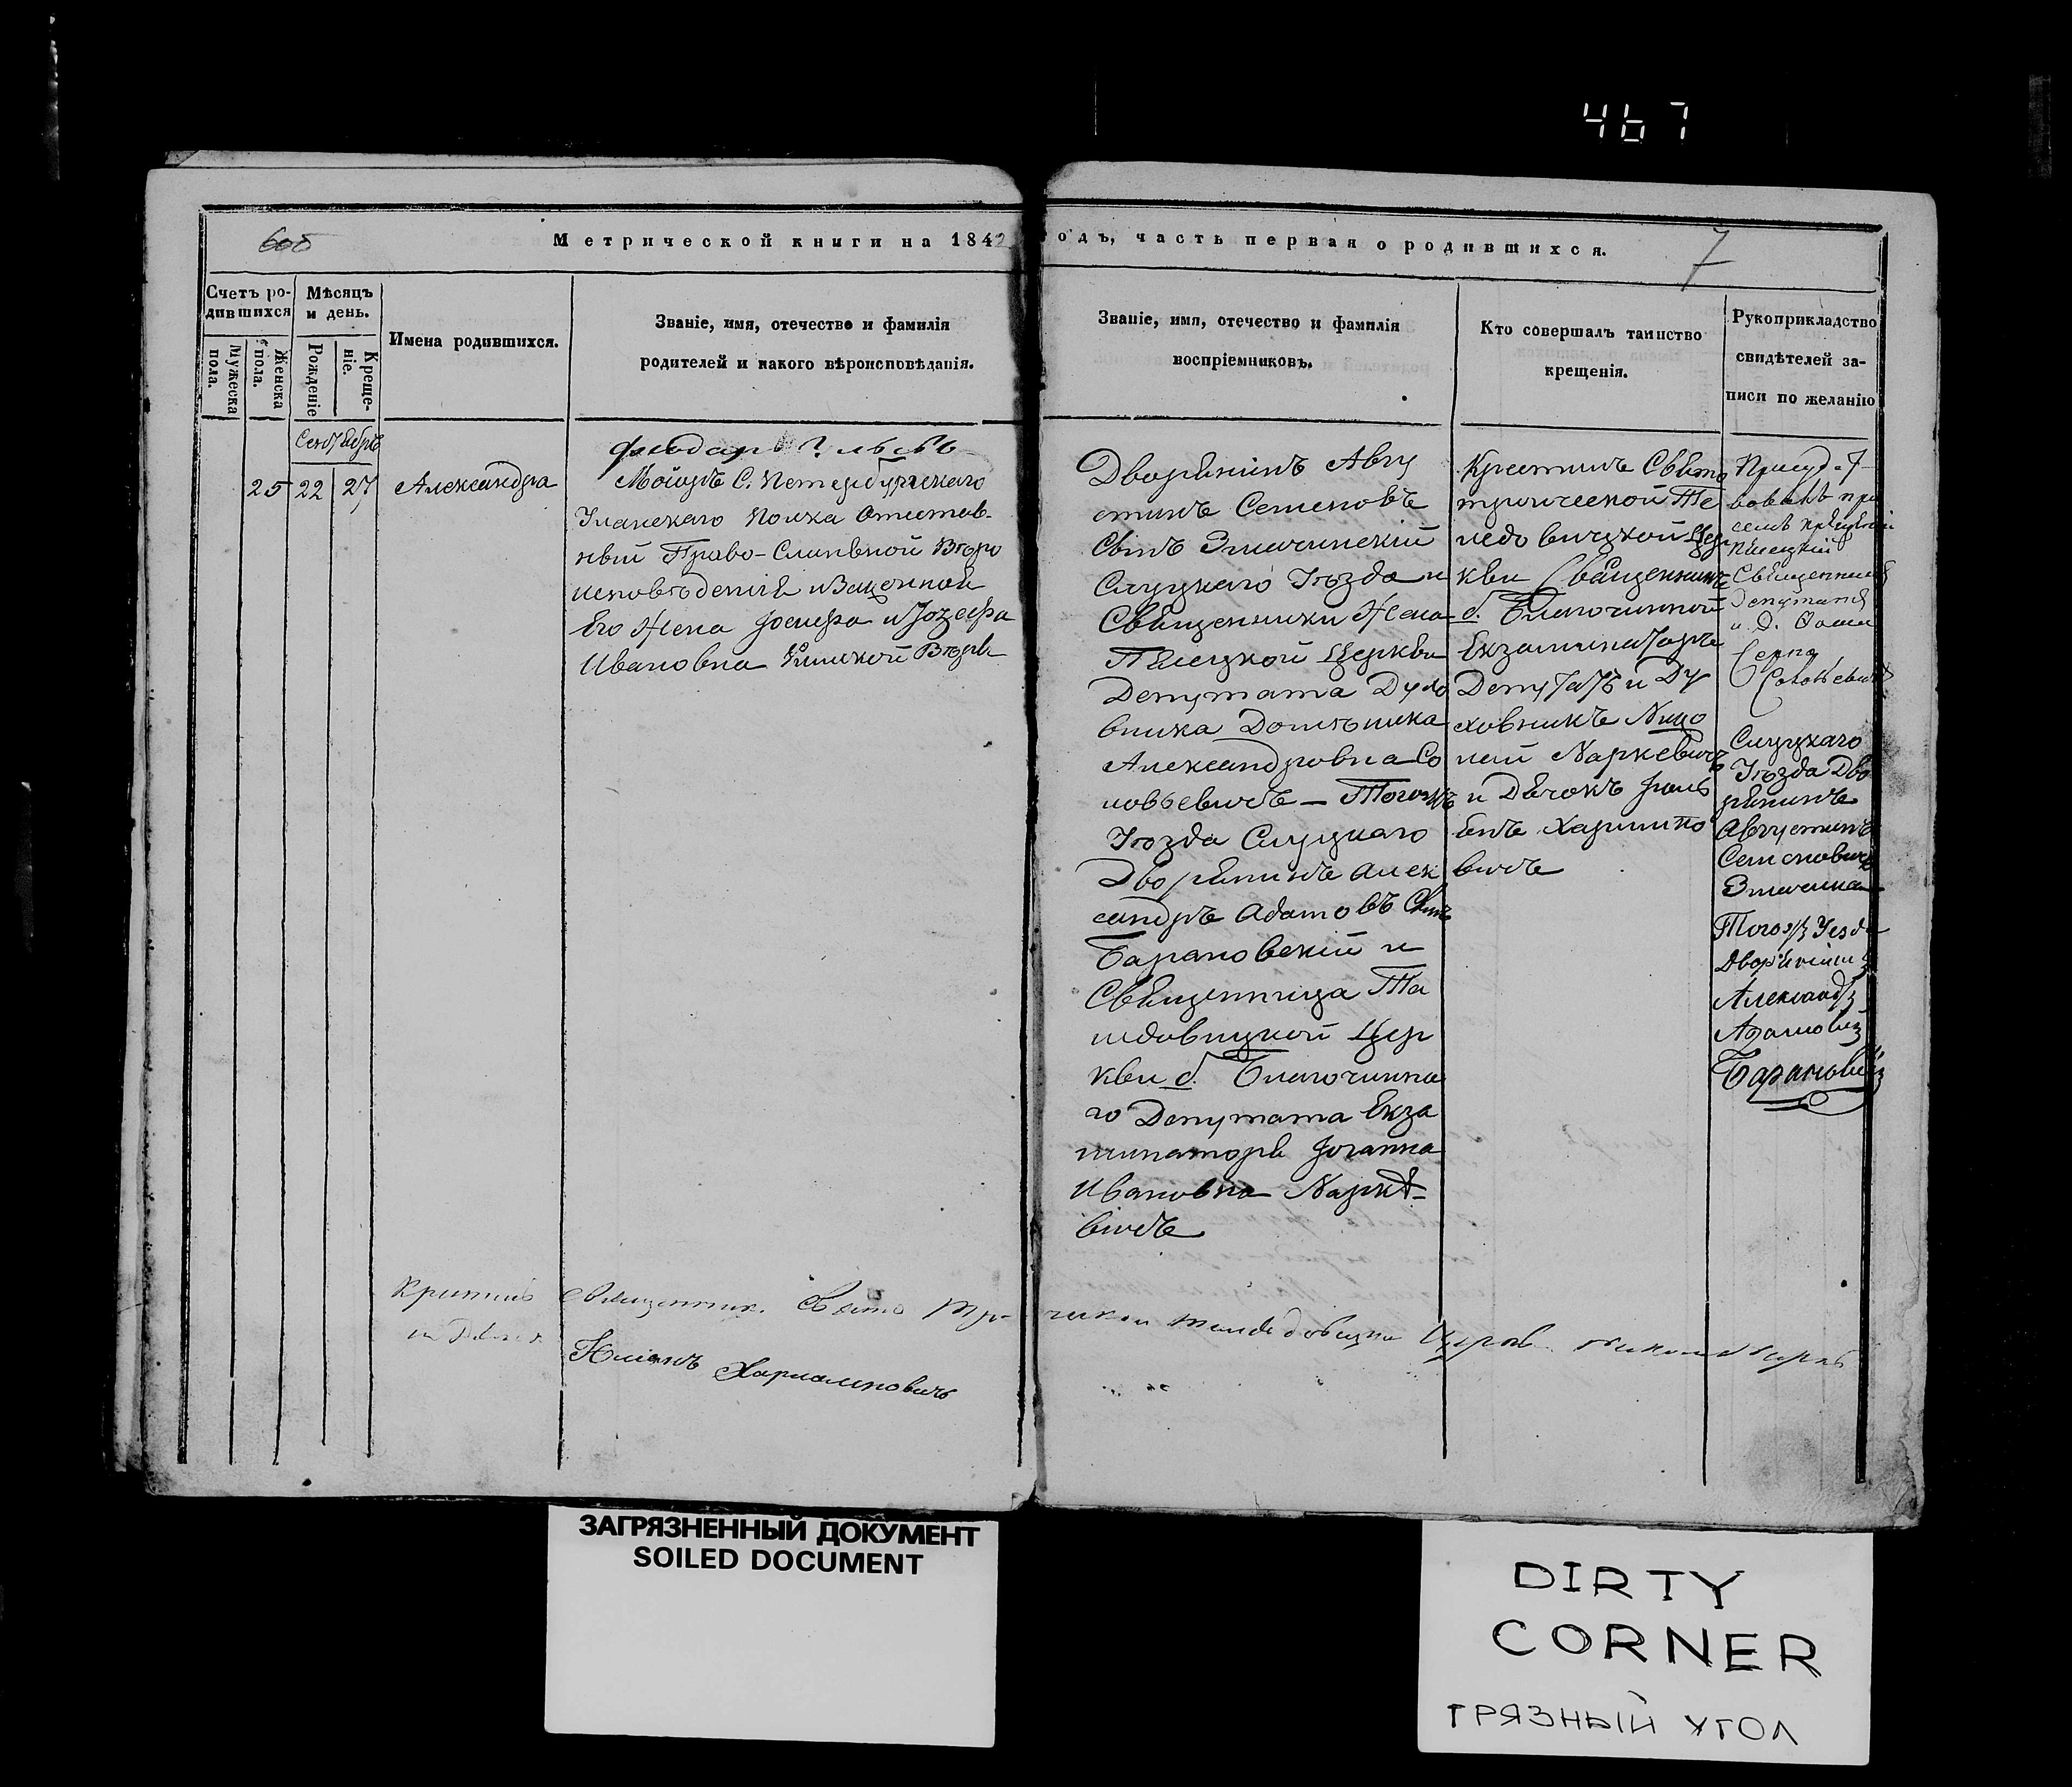 467
605
Метрической книги на 1842 годъ, часть первая о родившихся.
7
Счетъ родившихся
Мужеска пола.
Женска пола.
Мѣсяцъ и день.
Рожденіе
Крещеніе.
Имена родившихся.
Званіе, имя, отечество и фамилія
родителей и какого вѣроисповѣданія.
Званіе, имя, отечество и фамилія
воспріемниковъ.
Кто совершалъ таинство
крещенія.
Рукоприкладство
свидѣтелей за-
писи по желанію
Сентябрь
25 22 27 Александра
С. Петербургскаго
Уланскаго Полка Отстав-
ный Право-Славной Вѣро
исповѣденія и Законной
Его Жена Іозефа
Ивановна Римской Вѣры
Дворянинъ Авгу
стинъ Семеновъ
Сынъ
Слуцкаго Уѣзда и
Священника Жена
Церкви
Депутата Духо
вника Доминика
Александровна Со
ловьевичъ — Тогожъ
Уѣзда Слуцкаго
Дворянинъ Алек
сандръ Адамовъ Сынъ
Барановскій и
Священница Та
лядовицкой Цер
кви б. Благочинна
го Депутата Екза
минатора Іоганна
Ивановна Нарке-
вичъ
Крестилъ Свято
троической Та
лядовицкой Цер
кви Священникъ
б. Благочинной
Екзаминаторъ
Депутатъ и Ду
ховникъ Нико
лай Наркевичъ
и Дьячокъ Юль
янъ Харлампо
вичъ
Священникъ
Депутатъ
Соловьевичъ
Слуцкаго
Уѣзда Дво
рянинъ
Августинъ
Семеновичъ
Тогожъ Уезда
Дворянинъ
Александръ
Адамовичъ
Барановскій
Крестилъ Священник. Свято Тро- Церкв.
и Дьячок
Юліянъ Харламповичъ
ЗАГРЯЗНЕННЫЙ ДОКУМЕНТ
SOILED DOCUMENT
DIRTY
CORNER
ГРЯЗНЫЙ УГОЛ